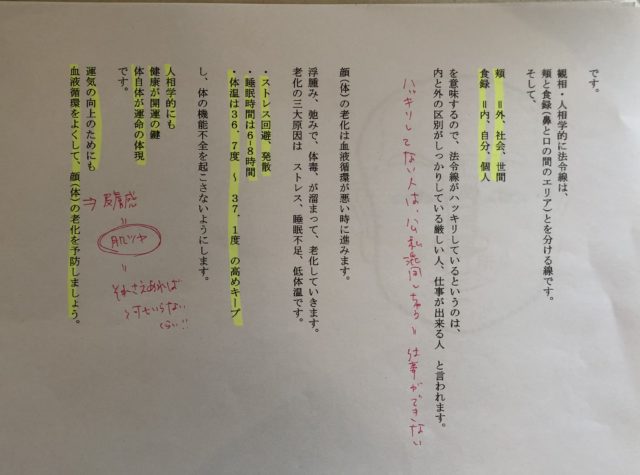 です。
観相・人相学的に法令線は、
頬と食録(鼻と口の間のエリア)とを分ける線です。
そして、
頬 =外、社会、世間
食録 =内、自分、個人
を意味するので、法令線がハッキリしているというのは、
内と外の区別がしっかりしている厳しい人、仕事が出来る人 と言われます。
ハッキリしてない人は、公私混同しちゃう=仕事ができない
顔(体)の老化は血液循環が悪い時に進みます。
浮腫み、弛みで、体毒、が溜まって、老化していきます。
老化の三大原因は ストレス、睡眠不足、低体温です。
・ストレス回避、発散
・睡眠時間は6-8時間
・体温は36.7度 ~ 37.1度 の高めキープ
し、体の機能不全を起こさないようにします。
人相学的にも
健康が開運の鍵
体自体が運命の体現
です。
運気の向上のためにも
血液循環をよくして、顔(体)の老化を予防しましょう。
⇒ 皮膚感
=
肌ツヤ
=
それさえあれば
何もいらない
くらい!!